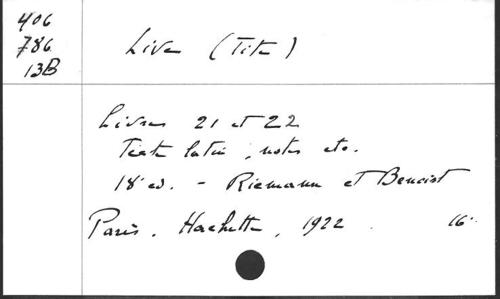 406
786
13B
Live (Tite)
Livres 21 et 22
Texte latin, notes etc.
18e ed. - Riemann et Benoist
Paris. Hachette, 1922. 16°